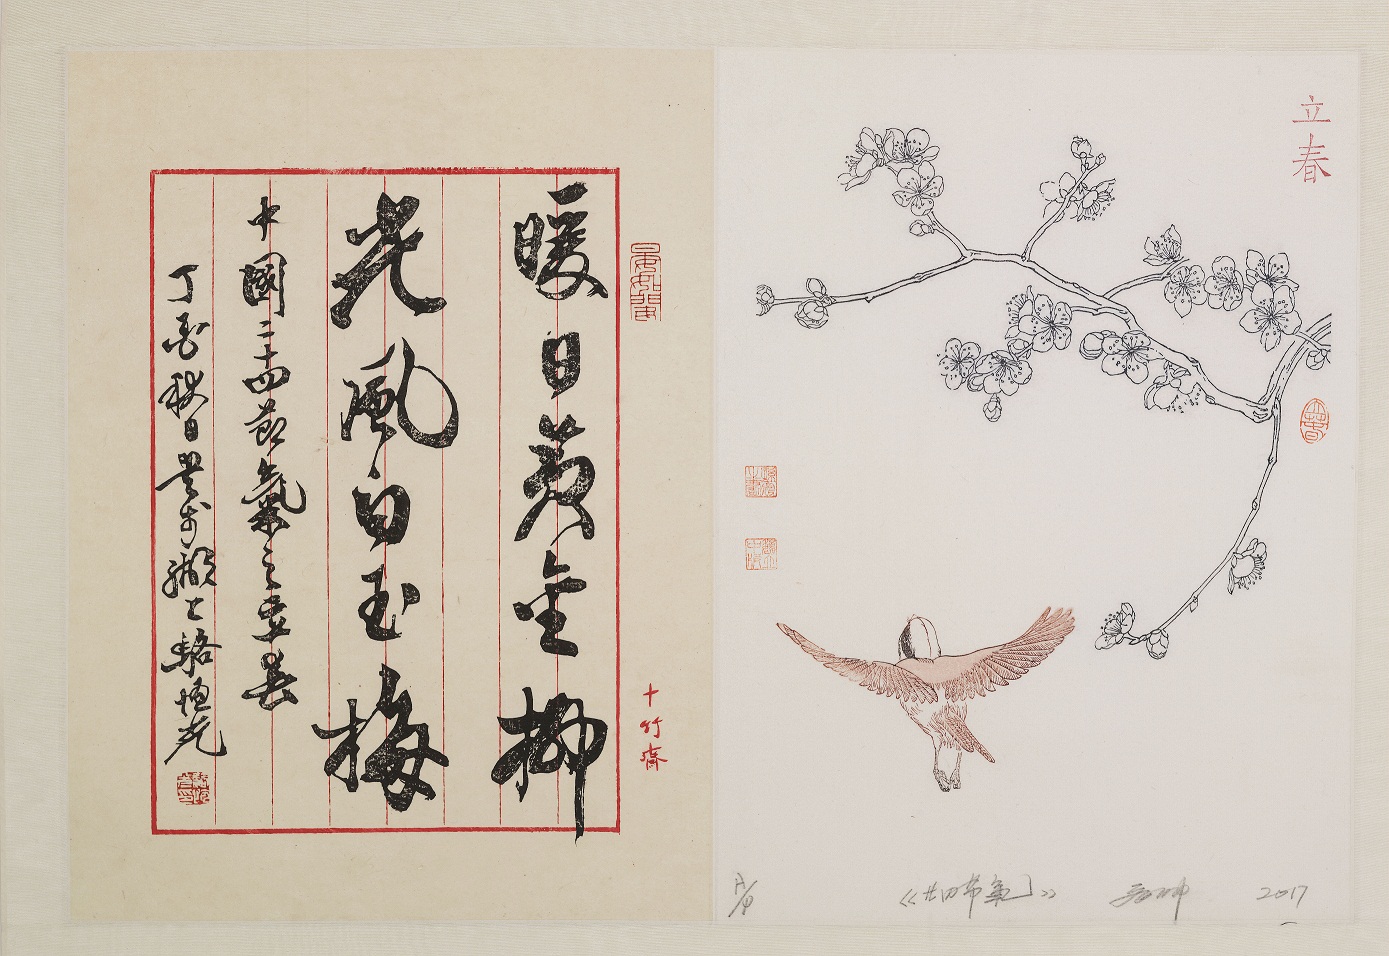 立春
立春
《廿四节氣》
2017
暖日黄金柳
光風白玉梅
中國二十四節氣之立春
丁酉秋日 駱恒光
十竹齋